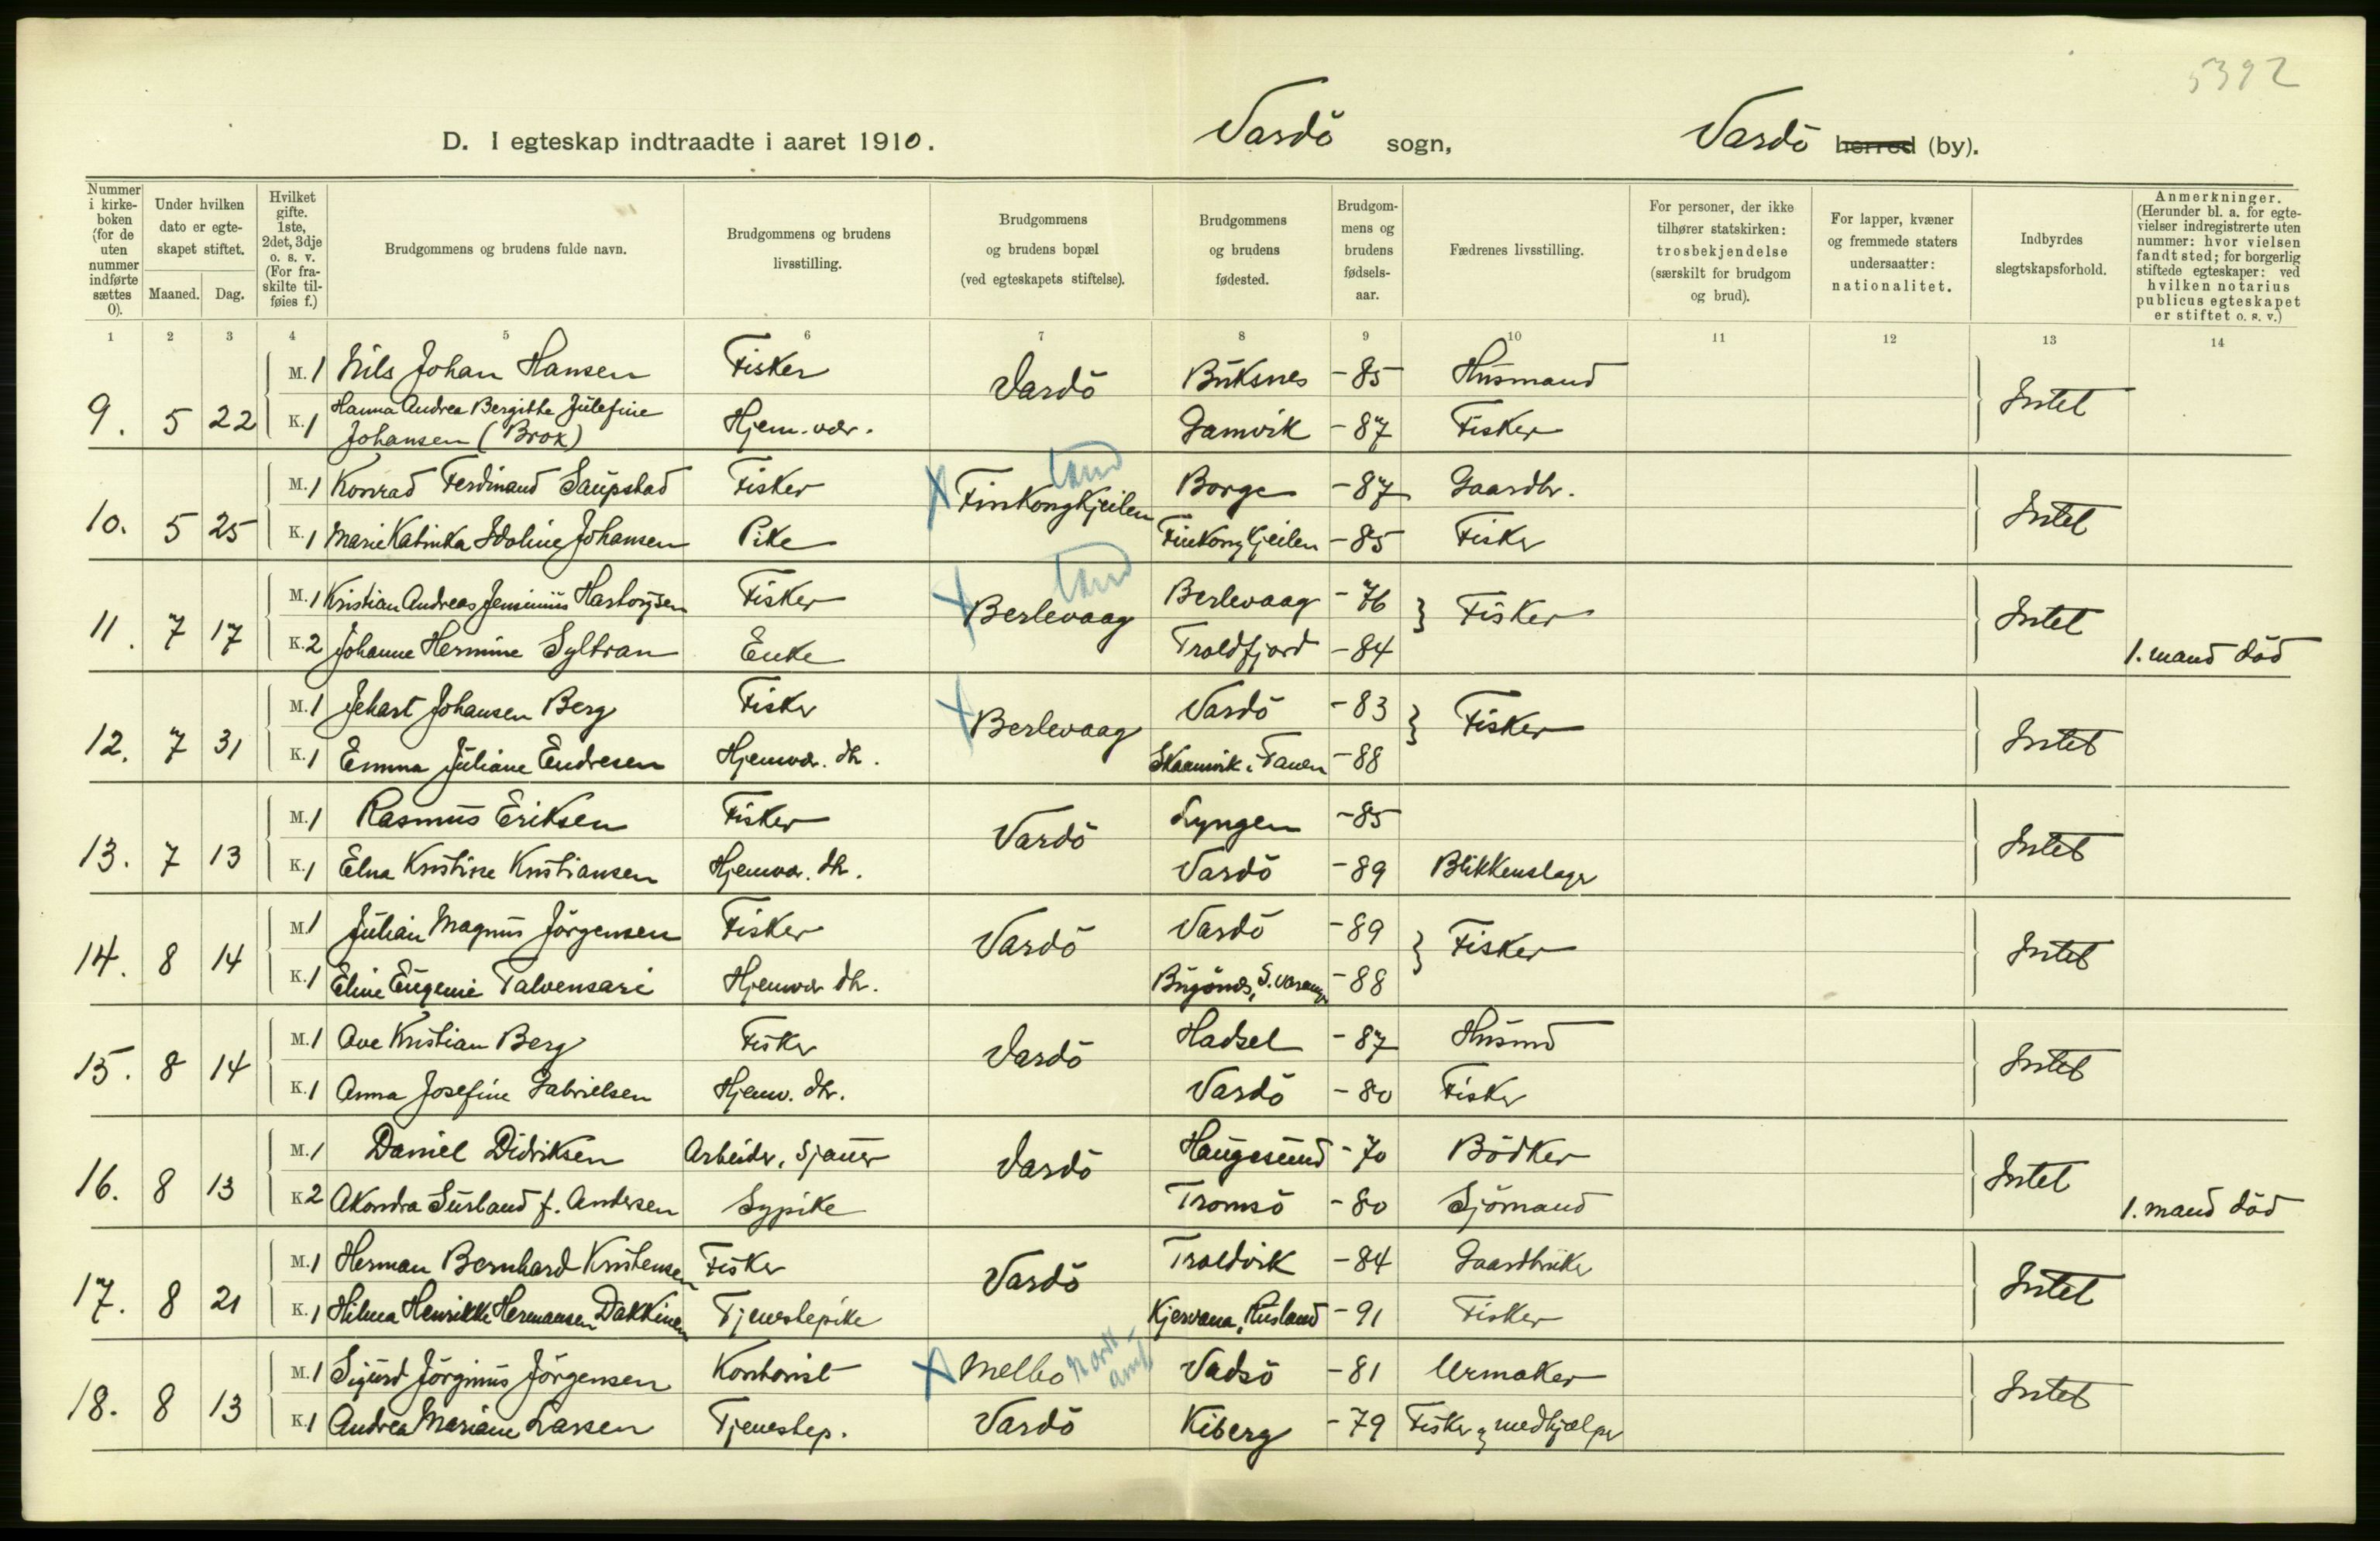 5392
D. I egteskap indtraadte i aaret 1910. Vardö sogn, Vardö herred (by).
Nummer i kirkeboken (for de uten nummer indførte sættes 0).
Under hvilken dato er egteskapet stiftet.
Maaned. Dag.
Hvilket gifte. 1ste, 2det, 3dje o. s. v. (For fraskilte tilføies f.)
Brudgommens og brudens fulde navn.
Brudgommens og brudens livsstilling.
Brudgommens og brudens bopæl (ved egteskapets stiftelse).
Brudgommens og brudens fødested.
Brudgommens og brudens fødselsaar.
Fædrenes livsstilling.
For personer, der ikke tilhører statskirken: trosbekjendelse (særskilt for brudgom og brud).
For lapper, kvæner og fremmede staters undersaatter: nationalitet.
Indbyrdes slegtskapsforhold.
Anmerkninger. (Herunder bl. a. for egtevielser indregistrerte uten nummer: hvor vielsen fandt sted; for borgerlig stiftede egteskaper: ved hvilken notarius publicus egteskapet er stiftet o. s. v.)
1 2 3 4 5 6 7 8 9 10 11 12 13 14
M. 1 Nils Johan Hansen Fisker Vardö Buksnes -85 Husmand
9. 5 22 K. 1 Hanna Andrea Bergitthe Julefine Johansen (Brox) Hjem. vær. Gamvik -87 Fisker Intet
M. 1 Konrad Ferdinand Saupstad Fisker X Finkongkjeilen land Borge -87 Gaardbr.
10. 5 25 K. 1 Marie Katinka Idoline Johansen Pike Finkongkjeilen -85 Fisker Intet
M. 1 Kristian Andreas Jensinius Hartvigsen Fisker X Berlevaag land Berlevaag -76 } Fisker
11. 7 17 K. 2 Johanne Hermine Syltran Enke Troldfjord -84 Intet 1. mand död
M. 1 Jehart Johansen Berg Fisker X Berlevaag Vardö -83 } Fisker
12. 7 31 K. 1 Emma Juliane Endresen Hjemvær. dtr. Skaanvik i Tanen -88 Intet
M. 1 Rasmus Eriksen Fisker Vardö Lyngen -85
13. 7 13 K. 1 Elna Kristine Kristiansen Hjemvær. dtr. Vardö -89 Blikkenslager Intet
M. 1 Julian Magnus Jörgensen Fisker Vardö Vardö -89 } Fisker
14. 8 14 K. 1 Eline Eugenie Talvensari Hjemvær dtr. Bugönes, S. Varanger -88 Intet
M. 1 Ove Kristian Berg Fisker Vardö Hadsel -87 Husmd
15. 8 14 K. 1 Anna Josefine Gabrielsen Hjemv. dtr. Vardö -80 Fisker Intet
M. 1 Daniel Didriksen Arbeider, Sjauer Vardö Haugesund -70 Bödker
16. 8 13 K. 2 Akondra Surland f. Andersen Sypike Tromsö -80 Sjömand Intet 1. mand död
M. 1 Herman Bernhard Kristensen Fisker Vardö Troldvik -84 Gaardbruker
17. 8 21 K. 1 Hilma Henrikke Hermansen Dakkinen Tjenestepike Kjervana, Rusland -91 Fisker Intet
M. 1 Sigurd Jörginus Jörgensen Kontorist X Melbo Nordl. amt Vadsö -81 Urmaker
18. 8 13 K. 1 Andrea Mariane Larsen Tjenestep. Vardö Kiberg -79 Fisker & medhjælper Intet